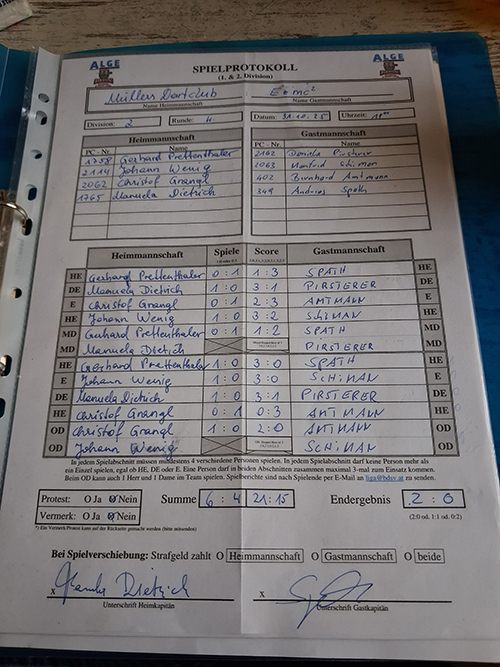 ALGE ALGE
SPIELPROTOKOLL
(1. & 2. Division)
Müllers Dartclub E=mc²
Name Heimmannschaft Name Gastmannschaft
Division: 2 Runde: 4. Datum: 31.10.25 Uhrzeit:
Heimmannschaft Gastmannschaft
PC - Nr. Name PC - Nr. Name
1758 Gerhard Prettenthaler 2162 Daniela Pirsterer
2114 Johann Wenig 2063 Manfred Schiman
2062 Christof Grangl 402 Bernhard Amtmann
1765 Manuela Dietrich 349 Andreas Späth
Heimmannschaft Spiele Score Gastmannschaft
HE Gerhard Prettenthaler 0:1 1:3 SPÄTH HE
DE Manuela Dietrich 1:0 3:1 PIRSTERER DE
E Christof Grangl 0:1 2:3 AMTMANN E
HE Johann Wenig 1:0 3:2 SCHIMAN HE
MD Gerhard Prettenthaler 0:1 1:2 SPÄTH MD
MD Manuela Dietrich PIRSTERER MD
HE Gerhard Prettenthaler 1:0 3:0 SPÄTH HE
E Johann Wenig 1:0 3:0 SCHIMAN E
DE Manuela Dietrich 1:0 3:1 PIRSTERER DE
HE Christof Grangl 0:1 0:3 AMTMANN HE
OD Christof Grangl 1:0 2:0 AMTMANN OD
OD Johann Wenig SCHIMAN OD
In jedem Spielabschnitt müssen mindestens 4 verschiedene Personen spielen. In jedem Spielabschnitt darf keine Person mehr als
ein Einzel spielen, egal ob HE, DE oder E. Eine Person darf in beiden Abschnitten zusammen maximal 3-mal zum Einsatz kommen.
Beim OD kann auch 1 Herr und 1 Dame im Team spielen. Spielberichte sind nach Spielende per E-Mail an liga@bdsv.at zu senden.
Protest: O Ja O Nein Summe 6:4 21:15 Endergebnis 2:0
Vermerk: O Ja O Nein (2:0 od. 1:1 od. 0:2)
*) Ein Vermerk/Protest kann auf der Rückseite gemacht werden (bitte ankreuzen)
Bei Spielverschiebung: Strafgeld zahlt O Heimmannschaft O Gastmannschaft O beide
x Manuela Dietrich x
Unterschrift Heimkapitän Unterschrift Gastkapitän